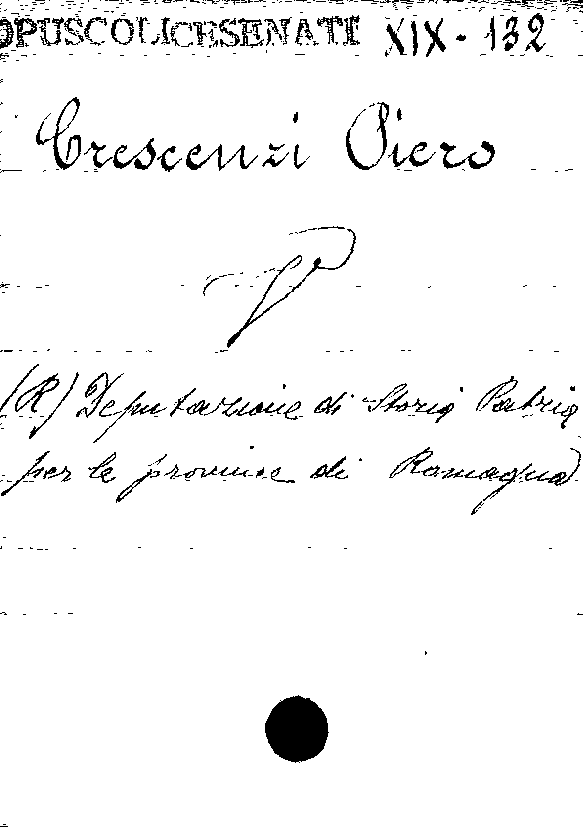 OPUSCOLI CESENATI XIX - 132
Crescenzi Piero
V
(R) Deputazione di Storia Patria
per le provincie di Romagna